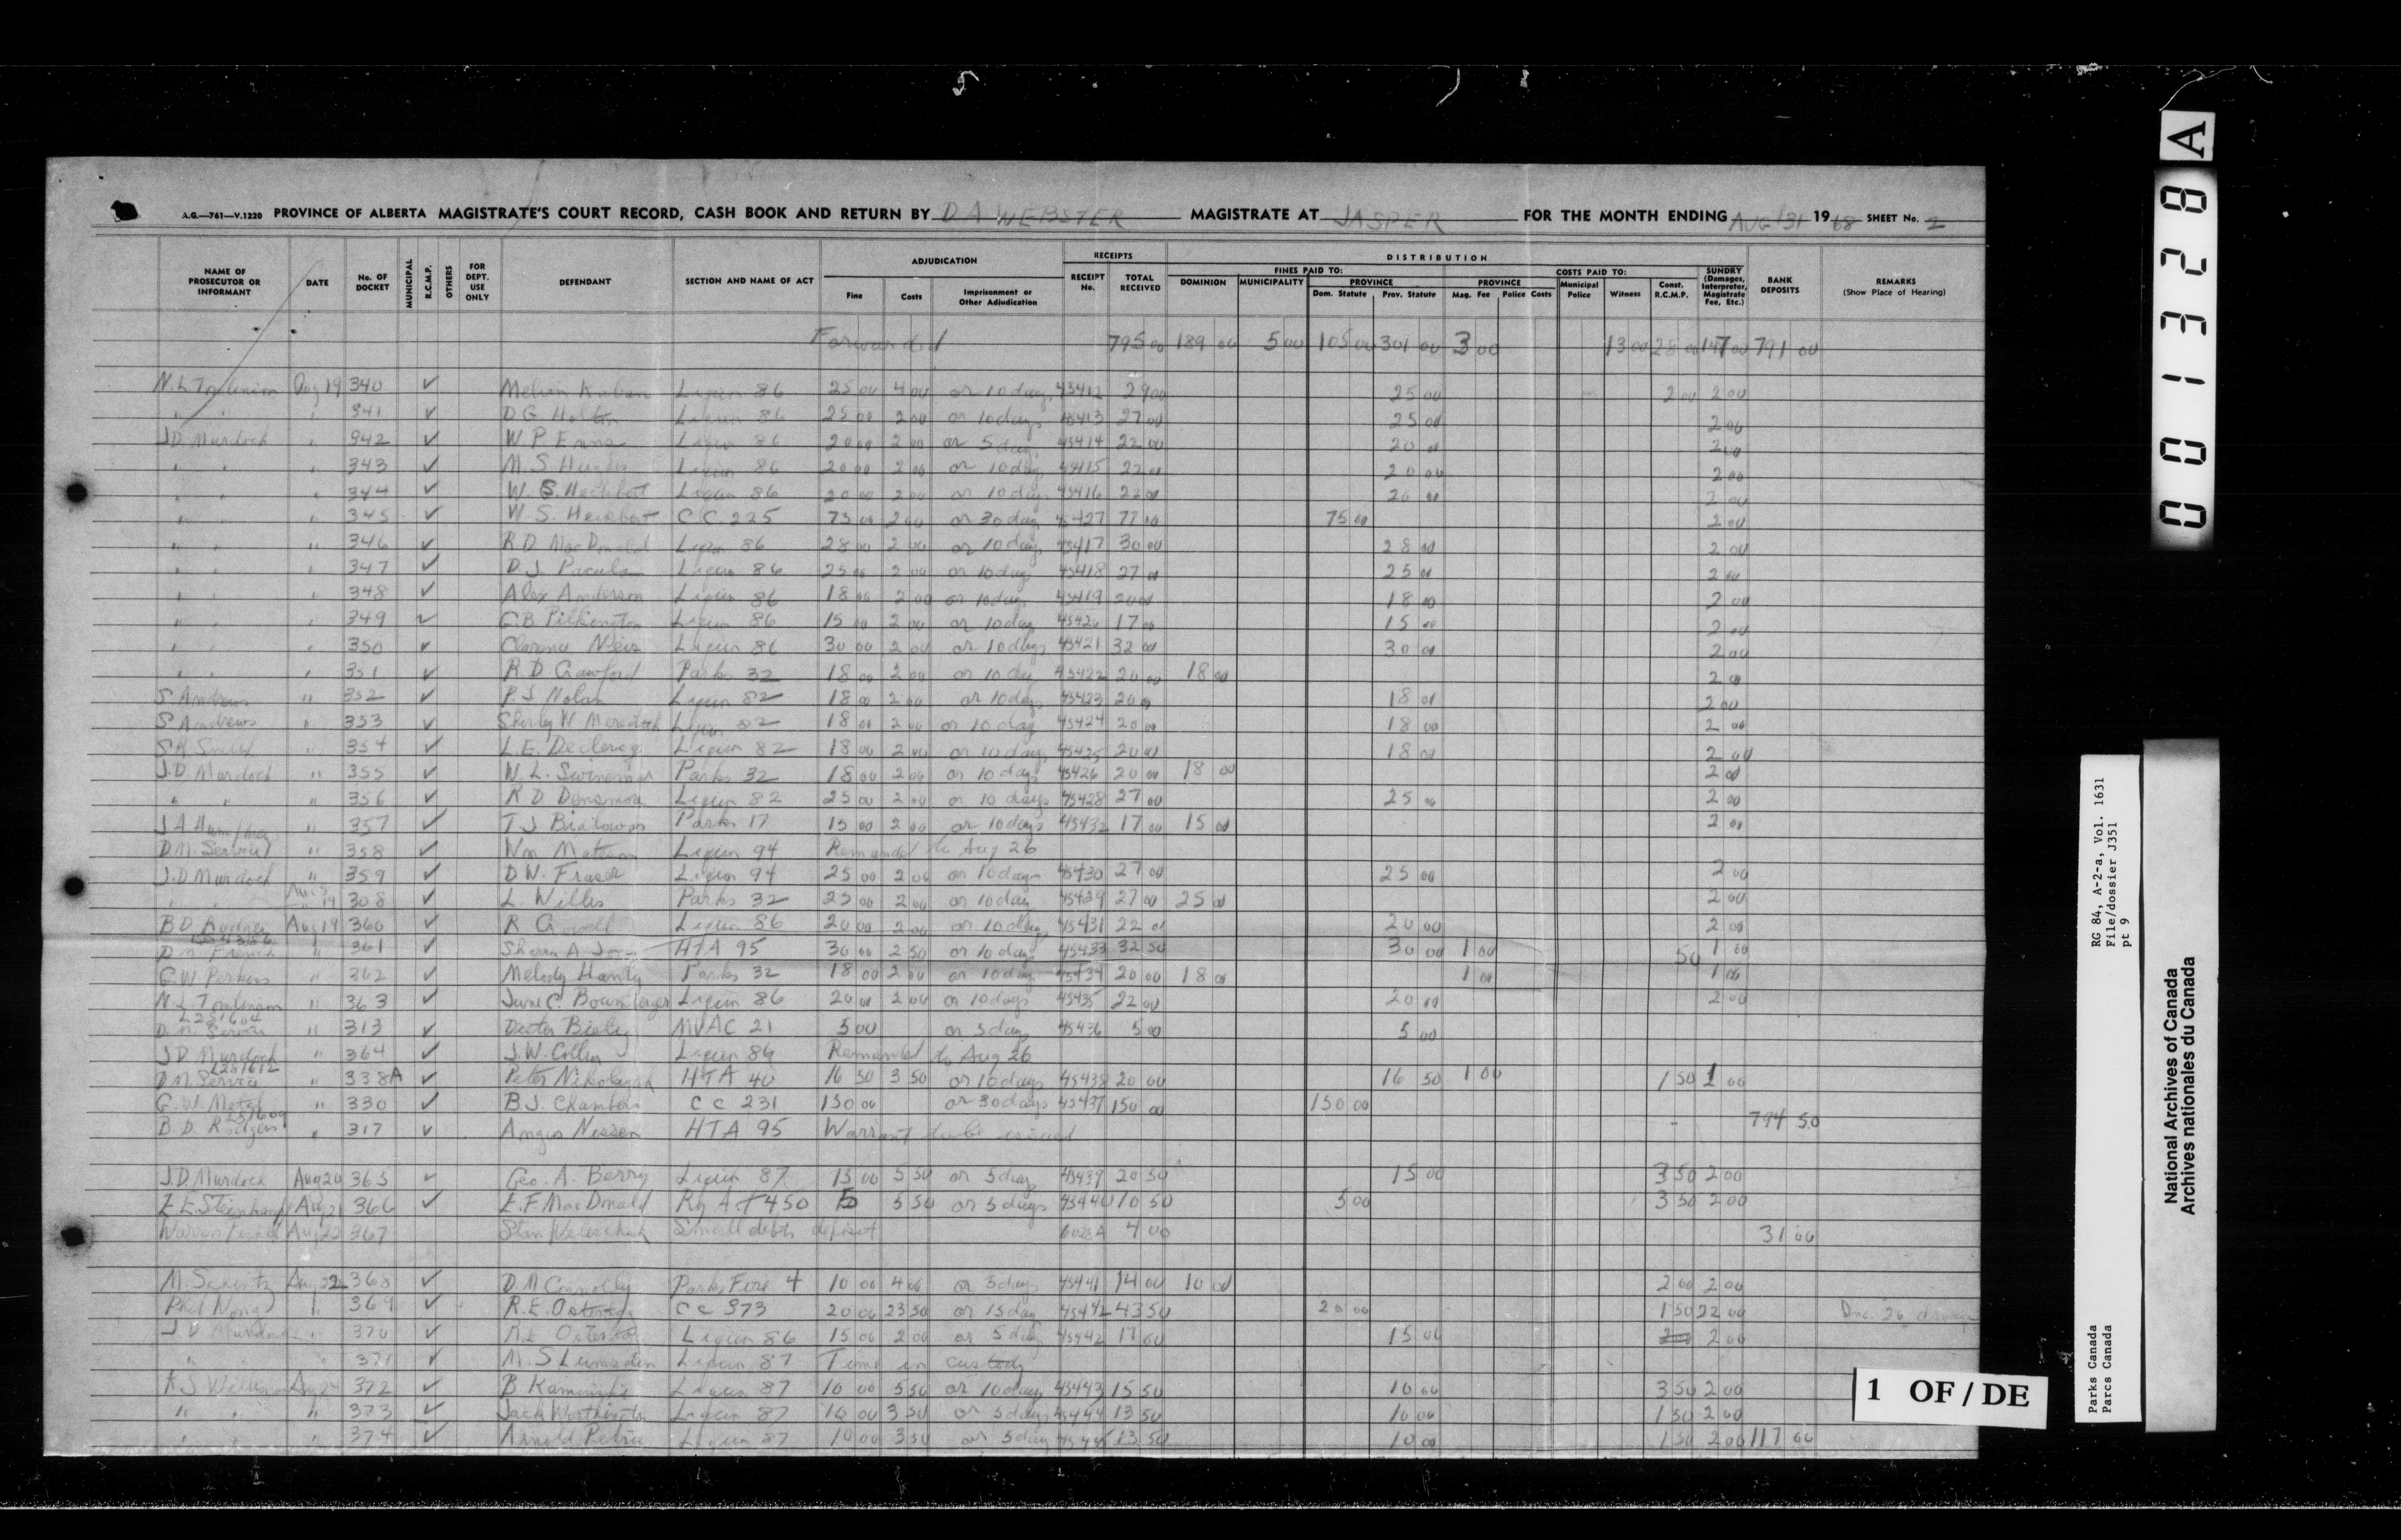 A.G.—761—V.1220 PROVINCE OF ALBERTA MAGISTRATE'S COURT RECORD, CASH BOOK AND RETURN BY D A WEBSTER MAGISTRATE AT JASPER FOR THE MONTH ENDING AUG 31 1968 SHEET No. 2
NAME OF PROSECUTOR OR INFORMANT DATE No. OF DOCKET MUNICIPAL R.C.M.P. OTHERS FOR DEPT. USE ONLY DEFENDANT SECTION AND NAME OF ACT ADJUDICATION Fine Costs Imprisonment or Other Adjudication RECEIPTS RECEIPT No. TOTAL RECEIVED DISTRIBUTION FINES PAID TO: DOMINION MUNICIPALITY PROVINCE Dom. Statute Prov. Statute COSTS PAID TO: PROVINCE Mag. Fee Police Costs Municipal Police Witness Const. R.C.M.P. SUNDRY (Damages, Interpreter, Magistrate Fee, Etc.) BANK DEPOSITS REMARKS (Show Place of Hearing)
Forwarded 795 00 189 00 5 00 105 00 301 00 3 00 13 00 28 00 147 00 791 00
N.L. Tomlinson Aug 19 340 ✓ Melvin 86 25 00 4 00 or 10 days 45412 29 00 25 00 2 00 2 00
" " " 341 ✓ D G Holton Liquor 86 25 00 2 00 or 10 days 45413 27 00 25 00 2 00
J.D. Murdoch " 342 ✓ W P Liquor 86 20 00 2 00 or 5 days 45414 22 00 20 00 2 00
" " " 343 ✓ M. S Liquor 86 20 00 2 00 or 10 days 45415 22 00 20 00 2 00
" " " 344 ✓ W. S. Liquor 86 20 00 2 00 or 10 days 45416 22 00 20 00 2 00
" " " 345 ✓ W. S. C C 225 75 00 2 00 or 30 days 45427 77 00 75 00 2 00
" " " 346 ✓ R D. MacDonald Liquor 86 28 00 2 00 or 10 days 45417 30 00 28 00 2 00
" " " 347 ✓ D J Liquor 86 25 00 2 00 or 10 days 45418 27 00 25 00 2 00
" " " 348 ✓ Alex Anderson Liquor 86 18 00 2 00 or 10 days 45419 20 00 18 00 2 00
" " " 349 ✓ G B Pilkington Liquor 86 15 00 2 00 or 10 days 45420 17 00 15 00 2 00
" " " 350 ✓ Clarence Liquor 86 30 00 2 00 or 10 days 45421 32 00 30 00 2 00
" " " 351 ✓ R D Crawford Parks 32 18 00 2 00 or 10 days 45422 20 00 18 00 2 00
S Andrews " 352 ✓ P J Nolan Liquor 82 18 00 2 00 or 10 days 45423 20 00 18 00 2 00
S Andrews " 353 ✓ Shirley W. Meredith Liquor 82 18 00 2 00 or 10 days 45424 20 00 18 00 2 00
" 354 ✓ L.E. Declercq Liquor 82 18 00 2 00 or 10 days 45425 20 00 18 00 2 00
J.D Murdoch " 355 ✓ W. L. Parks 32 18 00 2 00 or 10 days 45426 20 00 18 00 2 00
" " " 356 ✓ R D Densmore Liquor 82 25 00 2 00 or 10 days 45428 27 00 25 00 2 00
J A " 357 ✓ T J Parks 17 15 00 2 00 or 10 days 45432 17 00 15 00 2 00
D.M. Service " 358 ✓ Wm Liquor 94 Remanded to Aug 26
J.D Murdoch " 359 ✓ D W. Fraser Liquor 94 25 00 2 00 or 10 days 45430 27 00 25 00 2 00
308 ✓ L. Willis Parks 32 25 00 2 00 or 10 days 45429 27 00 25 00 2 00
B D Rodgers Aug 19 360 ✓ R Liquor 86 20 00 2 00 or 10 days 45431 22 00 20 00 2 00
D M. French " 361 ✓ A HTA 95 30 00 2 50 or 10 days 45433 32 50 30 00 1 00 50 1 00
G.W. Perkins " 362 ✓ Melody Handy Parks 32 18 00 2 00 or 10 days 45434 20 00 18 00 1 00 1 00
N.L. Tomlinson " 363 ✓ June C. Liquor 86 20 00 2 00 or 10 days 45435 22 00 20 00 2 00
D. M. Service " 313 ✓ MVAC 21 5 00 or 5 days 45436 5 00 5 00
J D Murdoch " 364 ✓ J.W. Liquor 86 Remanded to Aug 26
L281612
D M. Service " 338A ✓ Peter HTA 40 16 50 3 50 or 10 days 45438 20 00 16 50 1 00 1 50 1 00
G. W. " 330 ✓ B J. Chambers C C 231 150 00 or 30 days 45437 150 00 150 00
B. D. Rodgers " 317 ✓ Angus Nissen HTA 95 Warrant to be issued 794 50
J.D. Murdock Aug 20 365 ✓ Geo. A. Berry Liquor 87 15 00 5 50 or 5 days 45439 20 50 15 00 3 50 2 00
Aug 21 366 ✓ E. F. MacDonald Ry Act 450 5 5 50 or 5 days 45440 10 50 5 00 3 50 2 00
Aug 22 367 Stan Small debts deposit 4 00 31 00
M. Aug 22 368 ✓ D M Connolly Parks Fire 4 10 00 4 00 or 5 days 45441 14 00 10 00 2 00 2 00
" 369 ✓ R. E. C C 373 20 00 23 50 or 15 days 45442 43 50 20 00 1 50 22 00
J D Murdoch " 370 ✓ Liquor 86 15 00 2 00 or 5 days 45442 17 00 15 00 2 00
" " 371 ✓ M. S Lumsden Liquor 87 Time in custody
Aug 24 372 ✓ B Liquor 87 10 00 5 50 or 10 days 45443 15 50 10 00 3 50 2 00
" " " 373 ✓ Jack Liquor 87 10 00 3 50 or 5 days 45444 13 50 10 00 1 50 2 00
" " " 374 ✓ Arnold Liquor 87 10 00 3 50 or 5 days 45445 13 50 10 00 1 50 2 00 117 00
001328 A
Parks Canada RG 84, A-2-a, Vol. 1631
Parcs Canada File/dossier J351
pt 9
National Archives of Canada
Archives nationales du Canada
1 OF/DE